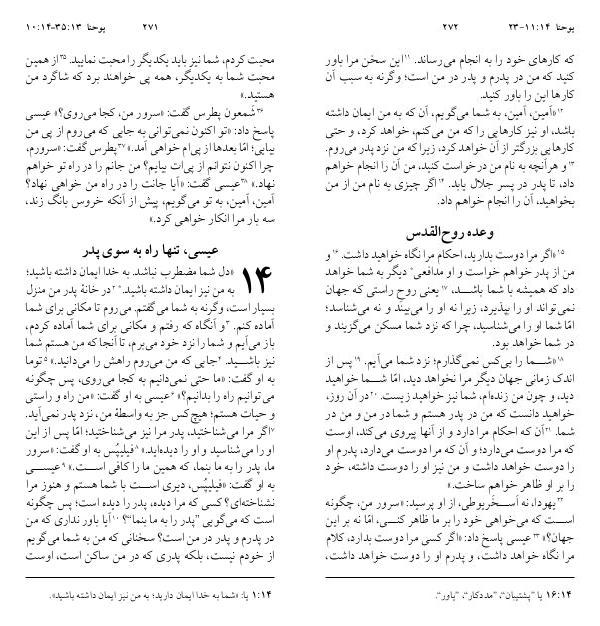 ۲۷۱ یوحنا ۳۵:۱۳-۱۰:۱۴
محبت کردم، شما نیز باید یکدیگر را محبت نمایید. ۳۵از همین
محبت شما به یکدیگر، همه پی خواهند برد که شاگرد من
هستید.»
۳۶شَمعون پطرس گفت: «سرور من، کجا می‌روی؟» عیسی
پاسخ داد: «تو اکنون نمی‌توانی به جایی که می‌روم از پی من
بیایی؛ امّا بعدها از پی‌ام خواهی آمد.» ۳۷پطرس گفت: «سرورم،
چرا اکنون نتوانم از پی‌ات بیایم؟ من جانم را در راه تو خواهم
نهاد.» ۳۸عیسی گفت: «آیا جانت را در راه من خواهی نهاد؟
آمین، آمین، به تو می‌گویم، پیش از آنکه خروس بانگ زند،
سه بار مرا انکار خواهی کرد.»
عیسی، تنها راه به سوی پدر
۱۴ «دل شما مضطرب نباشد. به خدا ایمان داشته باشید؛
به من نیز ایمان داشته باشید.* ۲در خانهٔ پدر من منزل
بسیار است، وگرنه به شما می‌گفتم. می‌روم تا مکانی برای شما
آماده کنم. ۳و آنگاه که رفتم و مکانی برای شما آماده کردم،
باز می‌آیم و شما را نزد خود می‌برم، تا آنجا که من هستم شما
نیز باشید. ۴جایی که من می‌روم راهش را می‌دانید.» ۵توما
به او گفت: «ما حتی نمی‌دانیم به کجا می‌روی، پس چگونه
می‌توانیم راه را بدانیم؟» ۶عیسی به او گفت: «من راه و راستی
و حیات هستم؛ هیچ‌کس جز به واسطهٔ من، نزد پدر نمی‌آید.
۷اگر مرا می‌شناختید، پدر مرا نیز می‌شناختید؛ امّا پس از این
او را می‌شناسید و او را دیده‌اید.» ۸فیلیپُس به او گفت: «سرور
ما، پدر را به ما بنما، که همین ما را کافی است.» ۹عیسی
به او گفت: «فیلیپُس، دیری است با شما هستم و هنوز مرا
نشناخته‌ای؟ کسی که مرا دیده، پدر را دیده است؛ پس چگونه
است که می‌گویی ”پدر را به ما بنما“؟ ۱۰آیا باور نداری که من
در پدرم و پدر در من است؟ سخنانی که من به شما می‌گویم
از خودم نیست، بلکه پدری که در من ساکن است، اوست
۱:۱۴ یا: «شما به خدا ایمان دارید؛ به من نیز ایمان داشته باشید».
یوحنا ۱۱:۱۴-۲۳ ۲۷۲
که کارهای خود را به انجام می‌رساند. ۱۱این سخن مرا باور
کنید که من در پدرم و پدر در من است؛ وگرنه به سبب آن
کارها این را باور کنید.
۱۲«آمین، آمین، به شما می‌گویم، آن که به من ایمان داشته
باشد، او نیز کارهایی را که من می‌کنم، خواهد کرد، و حتی
کارهایی بزرگتر از آن خواهد کرد، زیرا که من نزد پدر می‌روم.
۱۳و هرآنچه به نام من درخواست کنید، من آن را انجام خواهم
داد، تا پدر در پسر جلال یابد. ۱۴اگر چیزی به نام من از من
بخواهید، آن را انجام خواهم داد.
وعده روح‌القدس
۱۵«اگر مرا دوست بدارید، احکام مرا نگاه خواهید داشت. ۱۶و
من از پدر خواهم خواست و او مدافعی* دیگر به شما خواهد
داد که همیشه با شما باشد، ۱۷یعنی روح راستی که جهان
نمی‌تواند او را بپذیرد، زیرا نه او را می‌بیند و نه می‌شناسد؛
امّا شما او را می‌شناسید، چرا که نزد شما مسکن می‌گزیند و
در شما خواهد بود.
۱۸«شما را بی‌کس نمی‌گذارم؛ نزد شما می‌آیم. ۱۹پس از
اندک زمانی جهان دیگر مرا نخواهد دید، امّا شما خواهید
دید، و چون من زنده‌ام، شما نیز خواهید زیست. ۲۰در آن روز،
خواهید دانست که من در پدر هستم و شما در من و من در
شما. ۲۱آن که احکام مرا دارد و از آنها پیروی می‌کند، اوست
که مرا دوست می‌دارد؛ و آن که مرا دوست می‌دارد، پدرم او
را دوست خواهد داشت و من نیز او را دوست داشته، خود
را بر او ظاهر خواهم ساخت.»
۲۲یهودا، نه اَسخَریوطی، از او پرسید: «سرور من، چگونه
است که می‌خواهی خود را بر ما ظاهر کنی، امّا نه بر این
جهان؟» ۲۳عیسی پاسخ داد: «اگر کسی مرا دوست بدارد، کلام
مرا نگاه خواهد داشت، و پدرم او را دوست خواهد داشت،
۱۶:۱۴ یا ”پشتیبان“، ”مددکار“، ”یاور“.